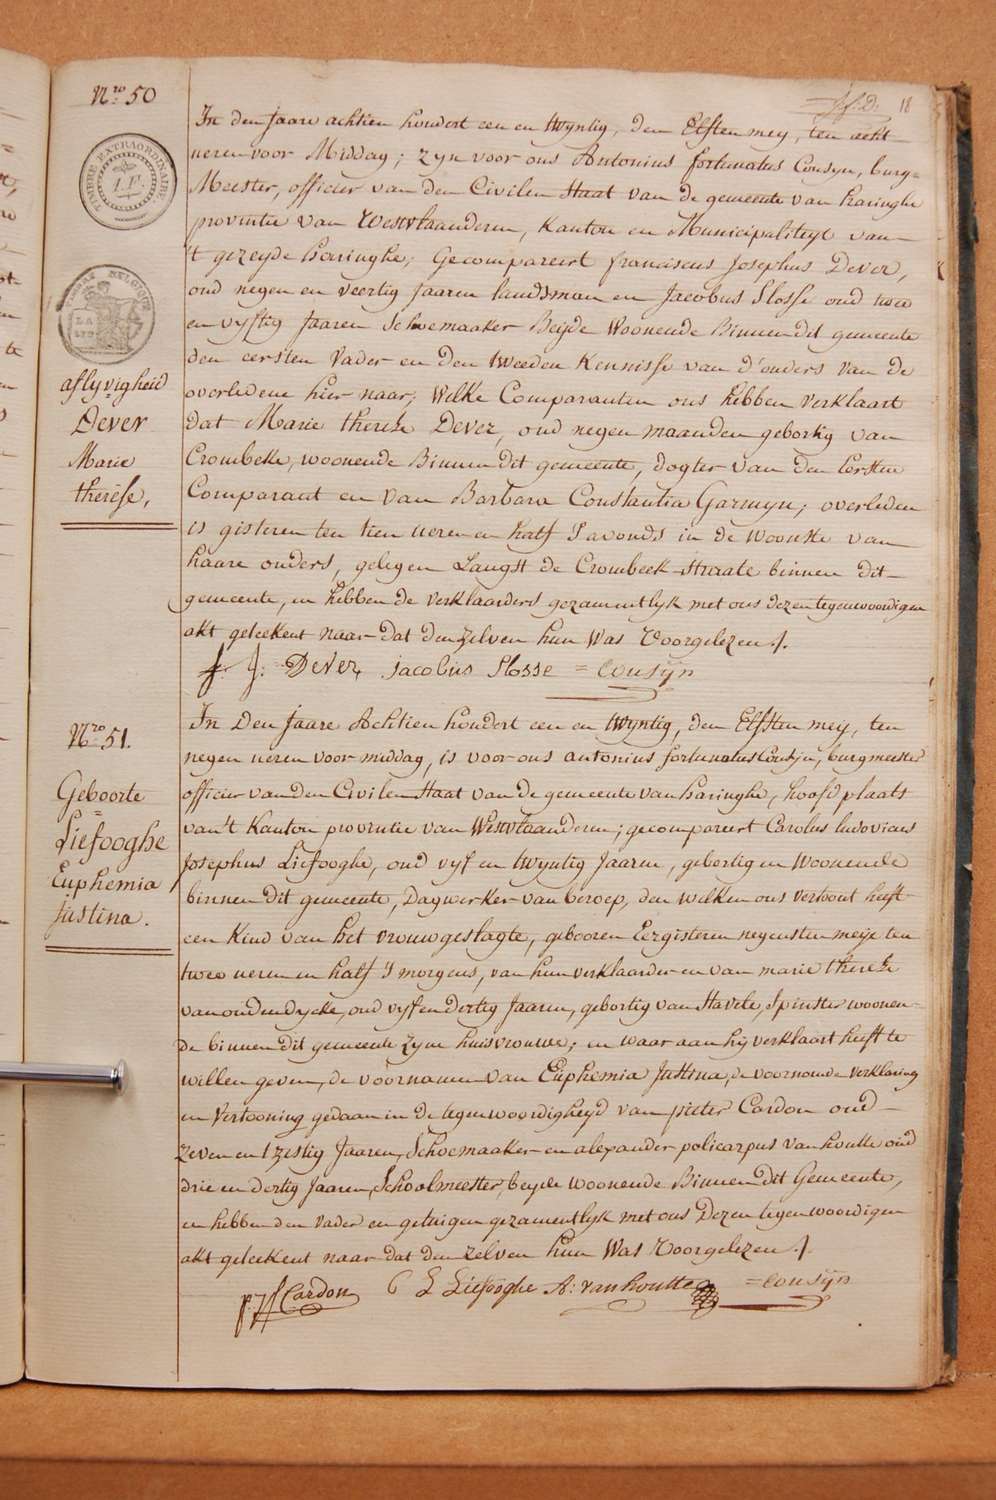 Nro 50
18
In den Jaare achtien hondert een en twyntig, den Elfsten mey, ten acht
TIMBRE EXTRAORDINAIRE
ueren voor Middag; zyn voor ons Antonius fortunatus Cousyn, burg=
Meester, officier van den Civilen Staat van de gemeente van haringhe
provintie van Westvlaanderen, Kanton en Municipaliteyt van
't gezeyde haringhe; Gecompareert franciscus Josephus Dever,
oud negen en veertig Jaaren landsman en Jacobus Slosse oud twee
en vyftig Jaaren Schoemaaker Beyde Woonende Binnen dit gemeente
den eersten Vader en den tweeden Kennisse van d'ouders van de
aflyvigheid
overledene hier naar; Welke Comparanten ons hebben verklaart
Dever
dat Marie therese Dever, oud negen maanden gebortig van
Marie
Crombeke, woonende Binnen dit gemeente, dogter van den Eersten
therése,
Comparant en van Barbara Constantia Garmyn; overleden
is gisteren ten tien ueren en half S'avonds in de Woonste van
haare ouders, gelegen Langst de Crombeek-straate binnen dit
gemeente, en hebben de verklaarders gezamentlyk met ons dezen tegenwoordigen
akt geteekent naar dat den zelven hun Was Voorgelezen./.
f. J: Dever Jacobus Slosse = Cousÿn
Nro 51.
In Den Jaare Achtien hondert een en twyntig, den Elfsten mey, ten
negen ueren voor middag, is voor ons antonius fortunatus Cousyn, burgmeester
Geboorte
officier van den Civilen Staat van de gemeente van haringhe, hoofdplaats
Liefooghe
van't Kanton provintie van Westvlaanderen; gecompareert Carolus ludovicus
Euphemia
Josephus Liefooghe, oud vyf en twyntig Jaaren, gebortig en Woonende
Justina.
binnen dit gemeente, Dagwerker van beroep, den welken ons vertoont heeft
een Kind van het vrouwgeslagte, gebooren Eergisteren negensten meije ten
twee ueren en half S'morgens, van hun verklaarder en van marie therese
vanoudendycke, oud vyf en dertig Jaaren, gebortig van Stavele, Spinster woonen-
de binnen dit gemeente zyne huisvrouwe; en waar aan hij verklaart heeft te
willen geven, de voornamen van Euphemia Justina, de voornoemde verklaring
en Vertooning gedaan in de tegenwoordigheyd van pieter Cardon oud
zeven en tzestig Jaaren, Schoemaaker en alexander policarpus van houtte oud
drie en dertig Jaaren, Schoolmeester, beyde woonende Binnen Dit Gemeente,
en hebben den vader en getuigen gezamentlyk met ons Dezen tegenwoordigen
akt geteekent naar dat den zelven hun Was Voorgelezen ./.
Cardon C L Liefooghe A: van houtte = Cousÿn